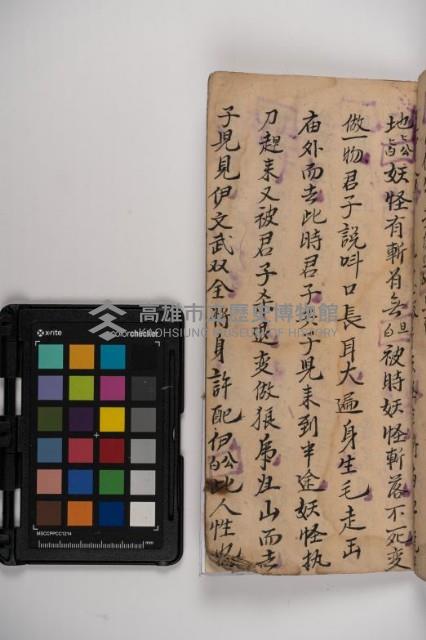 地公皆妖怪有斬首無旦被時妖怪斬落不死变
做一物君子說叫口長耳大遍身生毛走出
庙外而去此時君子子児来到半途妖怪执
刀趕来又被君子杀退变做狼帰归山而去
子児見伊文武双全身許配公此人性
高雄市歷史博物館
KAOHSIUNG MUSEUM OF HISTORY
x-rite
colorchecker
MSCCPPCC1214
mm